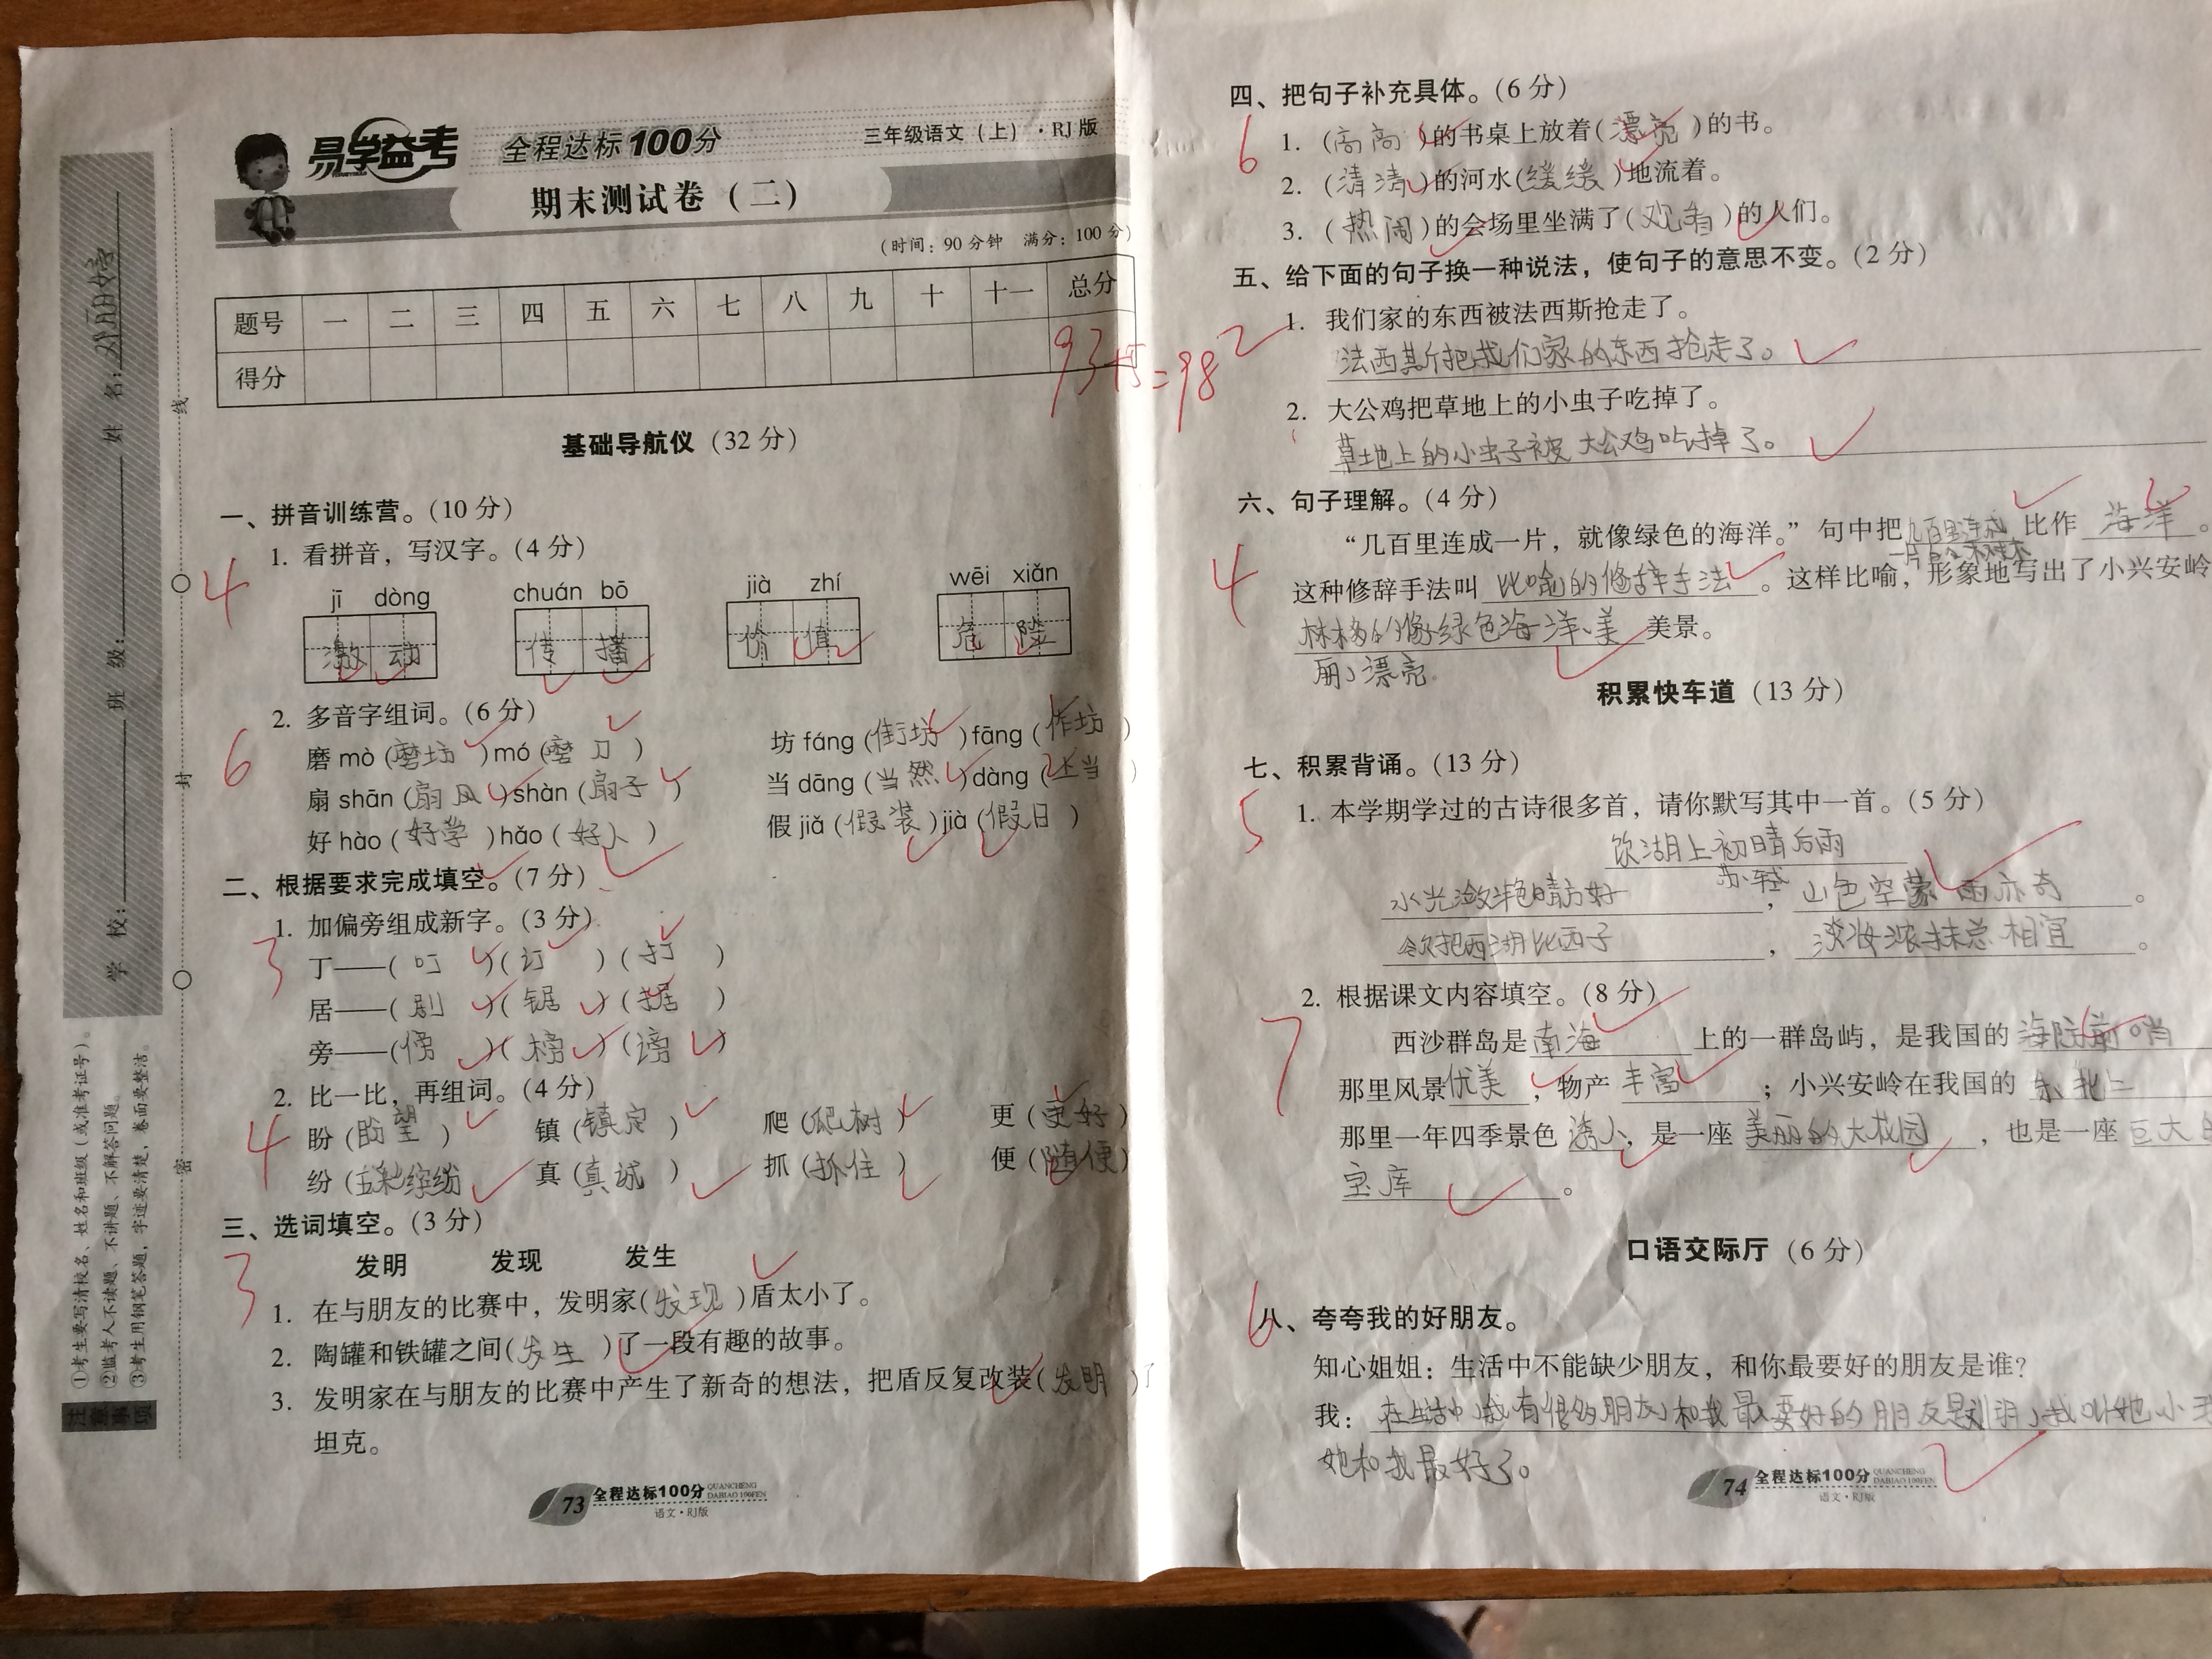 易学益考 全程达标100分 三年级语文(上)·RJ版
期末测试卷(二)
(时间:90分钟 满分:100分)
题号 一 二 三 四 五 六 七 八 九 十 十一 总分
得分
93+5=98
学 校: 班 级: 姓 名:
线
封
密
注意事项
①考生要写清校名、姓名和班级(或准考证号)。
②监考人不读题、不讲题、不解答问题。
③考生用钢笔答题,字迹要清楚,卷面要整洁。
基础导航仪(32分)
一、拼音训练营。(10分)
4
1. 看拼音,写汉字。(4分)
jī dòng chuán bō jià zhí wēi xiǎn
激动 传播 价值 危险
2. 多音字组词。(6分)
6
磨 mò(磨坊)mó(磨刀) 坊 fáng(街坊)fāng(作坊)
扇 shān(扇风)shàn(扇子) 当 dāng(当然)dàng(上当)
好 hào(好学)hǎo(好人) 假 jiǎ(假装)jià(假日)
二、根据要求完成填空。(7分)
1. 加偏旁组成新字。(3分)
3
丁——(叮)(订)(打)
居——(剧)(锯)(据)
旁——(傍)(榜)(谤)
2. 比一比,再组词。(4分)
4
盼(盼望) 镇(镇定) 爬(爬树) 更(更好)
纷(五彩缤纷) 真(真诚) 抓(抓住) 便(随便)
三、选词填空。(3分)
3
发明 发现 发生
1. 在与朋友的比赛中,发明家(发现)盾太小了。
2. 陶罐和铁罐之间(发生)了一段有趣的故事。
3. 发明家在与朋友的比赛中产生了新奇的想法,把盾反复改装(发明)了
坦克。
73 全程达标100分 QUANCHENG DABIAO 100FEN
语文·RJ版
四、把句子补充具体。(6分)
6
1. (高高)的书桌上放着(漂亮)的书。
2. (清清)的河水(缓缓)地流着。
3. (热闹)的会场里坐满了(观看)的人们。
五、给下面的句子换一种说法,使句子的意思不变。(2分)
2
1. 我们家的东西被法西斯抢走了。
法西斯把我们家的东西抢走了。
2. 大公鸡把草地上的小虫子吃掉了。
草地上的小虫子被大公鸡吃掉了。
六、句子理解。(4分)
4
“几百里连成一片,就像绿色的海洋。”句中把几百里连成一片的树木比作海洋。
这种修辞手法叫比喻的修辞手法。这样比喻,形象地写出了小兴安岭
美景。
丽、漂亮
积累快车道(13分)
七、积累背诵。(13分)
5
1. 本学期学过的古诗很多首,请你默写其中一首。(5分)
饮湖上初晴后雨
苏轼
水光潋滟晴方好,山色空蒙雨亦奇。
欲把西湖比西子,淡妆浓抹总相宜。
2. 根据课文内容填空。(8分)
7
西沙群岛是南海上的一群岛屿,是我国的海防前哨
那里风景优美,物产丰富;小兴安岭在我国的东北
那里一年四季景色诱人,是一座美丽的大花园,也是一座巨大的
宝库。
口语交际厅(6分)
6
八、夸夸我的好朋友。
知心姐姐:生活中不能缺少朋友,和你最要好的朋友是谁?
我:在生活中,我有很多朋友,和我最要好的朋友是 我叫她小
她和我最好了。
74 全程达标100分 QUANCHENG DABIAO 100FEN
语文·RJ版